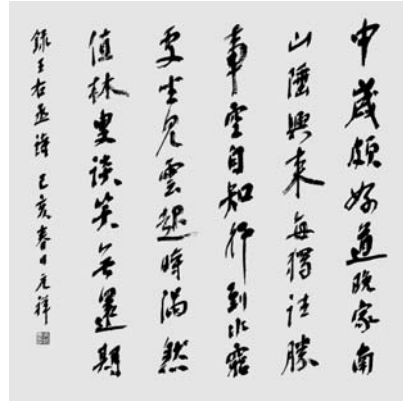 中歲頗好道晚家南
山陲興來每獨往勝
事空自知行到水窮
處坐見雲起時偶然
值林叟談笑無還期
錄王右丞詩 己亥春日元祥